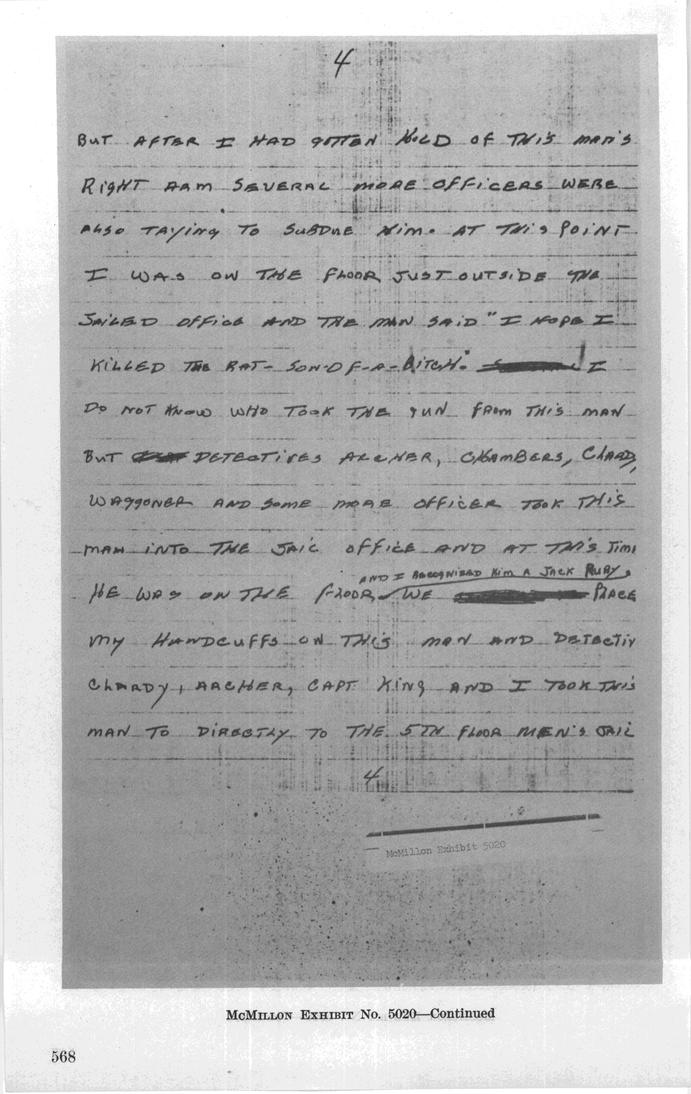 4
BUT AFTER I HAD GOTTEN HOLD OF THIS MAN'S
RIGHT ARM SEVERAL MORE OFFICERS WERE
ALSO TRYING TO SUBDUE HIM. AT THIS POINT
I WAS ON THE FLOOR JUST OUTSIDE THE
JAILED OFFICE AND THE MAN SAID "I HOPE I
KILLED THE RAT-SON-OF-A-BITCH." I
DO NOT KNOW WHO TOOK THE GUN FROM THIS MAN
BUT DETECTIVES ARCHER, CHAMBERS, CLARDY,
WAGGONER AND SOME MORE OFFICER TOOK THIS
MAN INTO THE JAIL OFFICE AND AT THIS TIME
AND I RECOGNIZED HIM A JACK RUBY.
HE WAS ON THE FLOOR WE PLACE
MY HANDCUFFS ON THIS MAN AND DETECTIV
CLARDY, ARCHER, CAPT KING AND I TOOK THIS
MAN TO DIRECTLY TO THE 5TH FLOOR MEN'S JAIL
4
McMillon Exhibit 5020
McMILLON EXHIBIT No. 5020—Continued
568